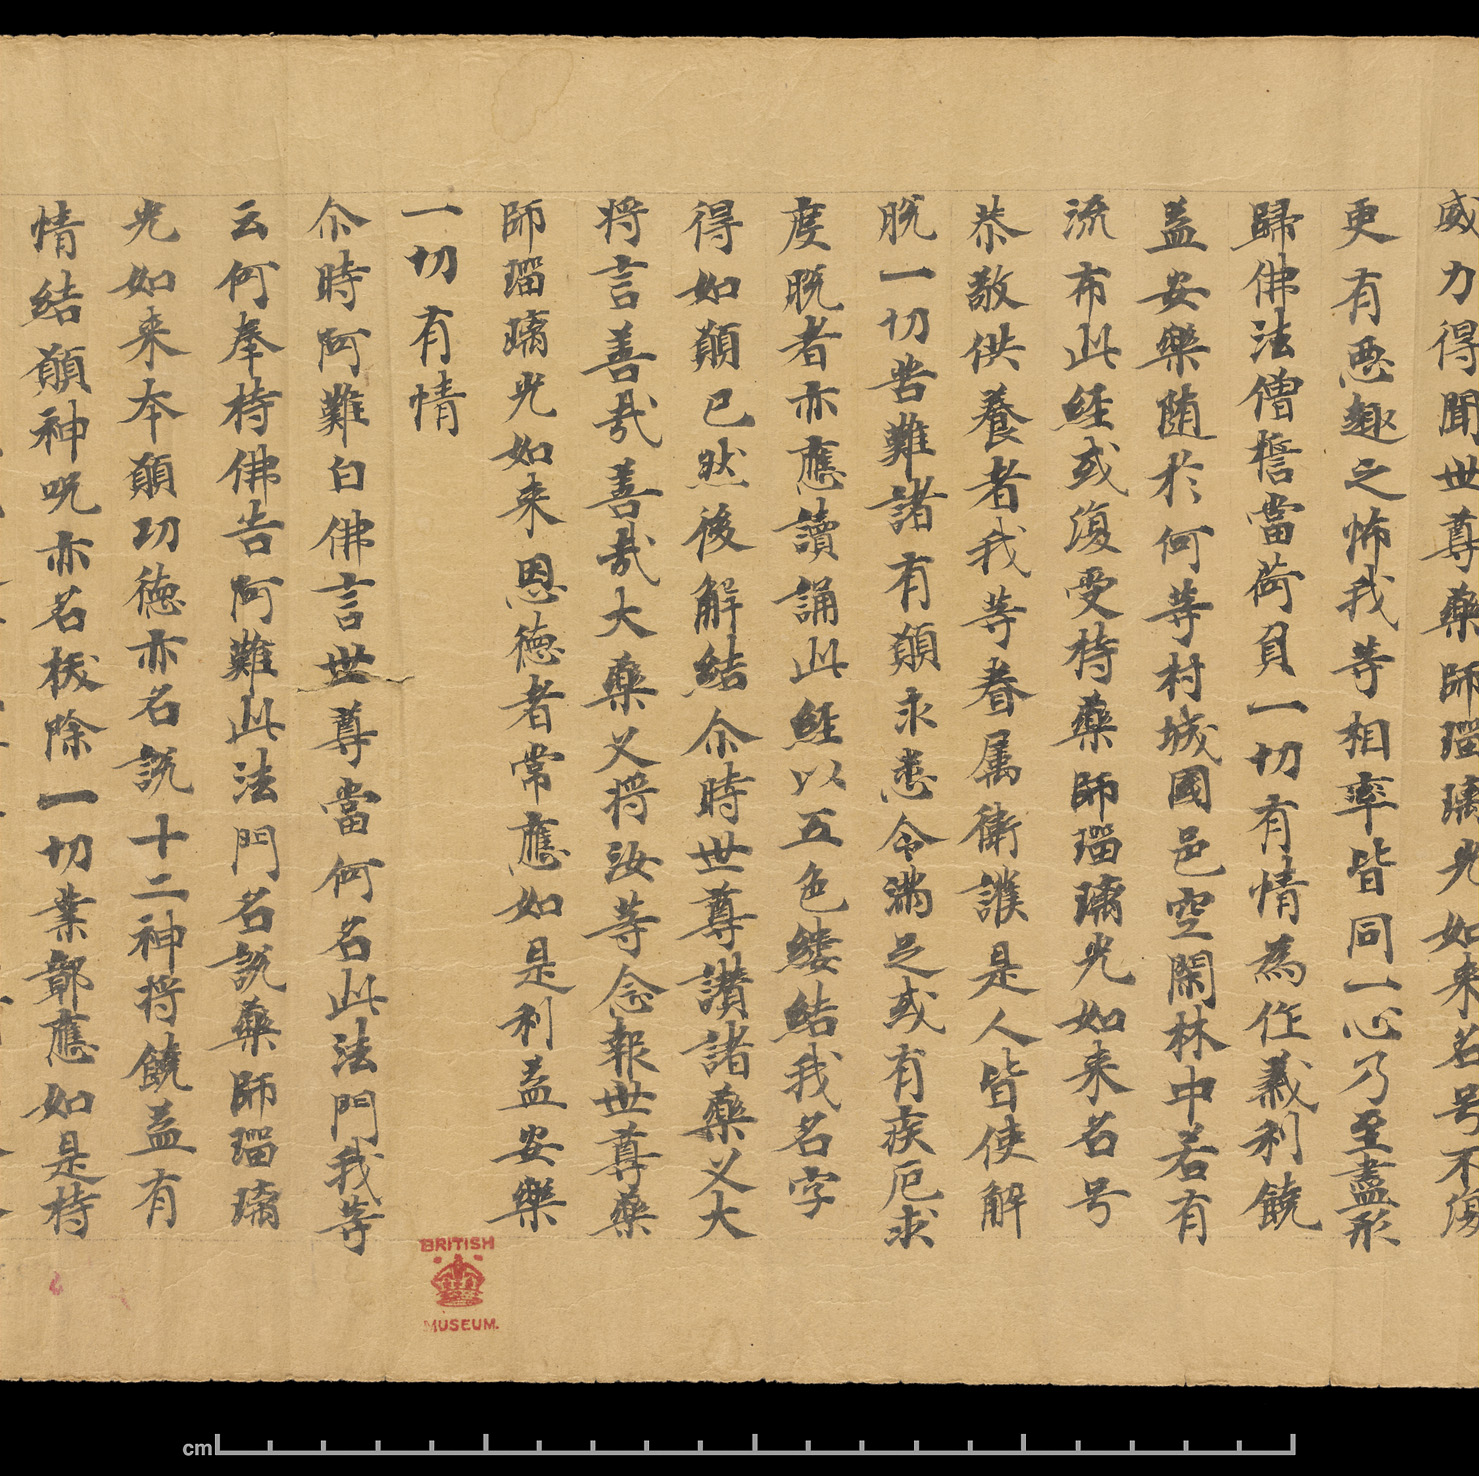 威力得聞世尊藥師瑠璃光如来名号不復
更有惡趣之怖我等相率皆同一心乃至盡形
歸佛法僧誓當荷負一切有情為作義利饒
益安樂随於何等村城國邑空閑林中若有
流布此經或復受持藥師瑠璃光如来名号
恭敬供養者我等眷属衛護是人皆使解
脱一切苦難諸有願求悉令滿足或有疾厄求
度脱者亦應讀誦此經以五色縷結我名字
得如願已然後解結尒時世尊讃諸藥叉大
将言善哉善哉大藥叉将汝等念報世尊藥
師瑠璃光如来恩德者常應如是利益安樂
一切有情
尒時阿難白佛言世尊當何名此法門我等
云何奉持佛告阿難此法門名説藥師瑠璃
光如来本願功德亦名説十二神将饒益有
情結願神呪亦名拔除一切業鄣應如是持
BRITISH
MUSEUM.
cm